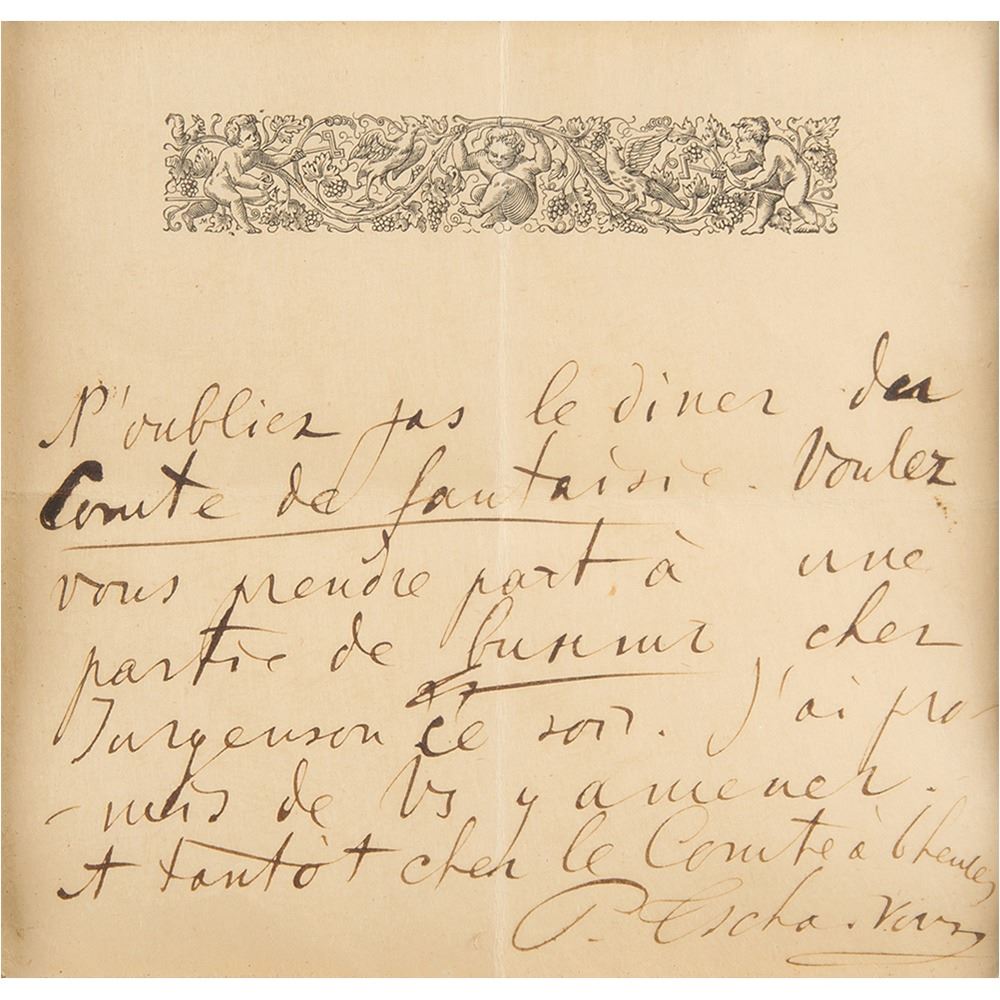 N'oubliez pas le diner du
Comte de fantaisie. Voulez
vous prendre part à une
partie de chez
Jurgenson ce soir. J'ai pro-
-mis de Vs y amener.
A tantôt chez le Comte à 6 heures
P. Tscha